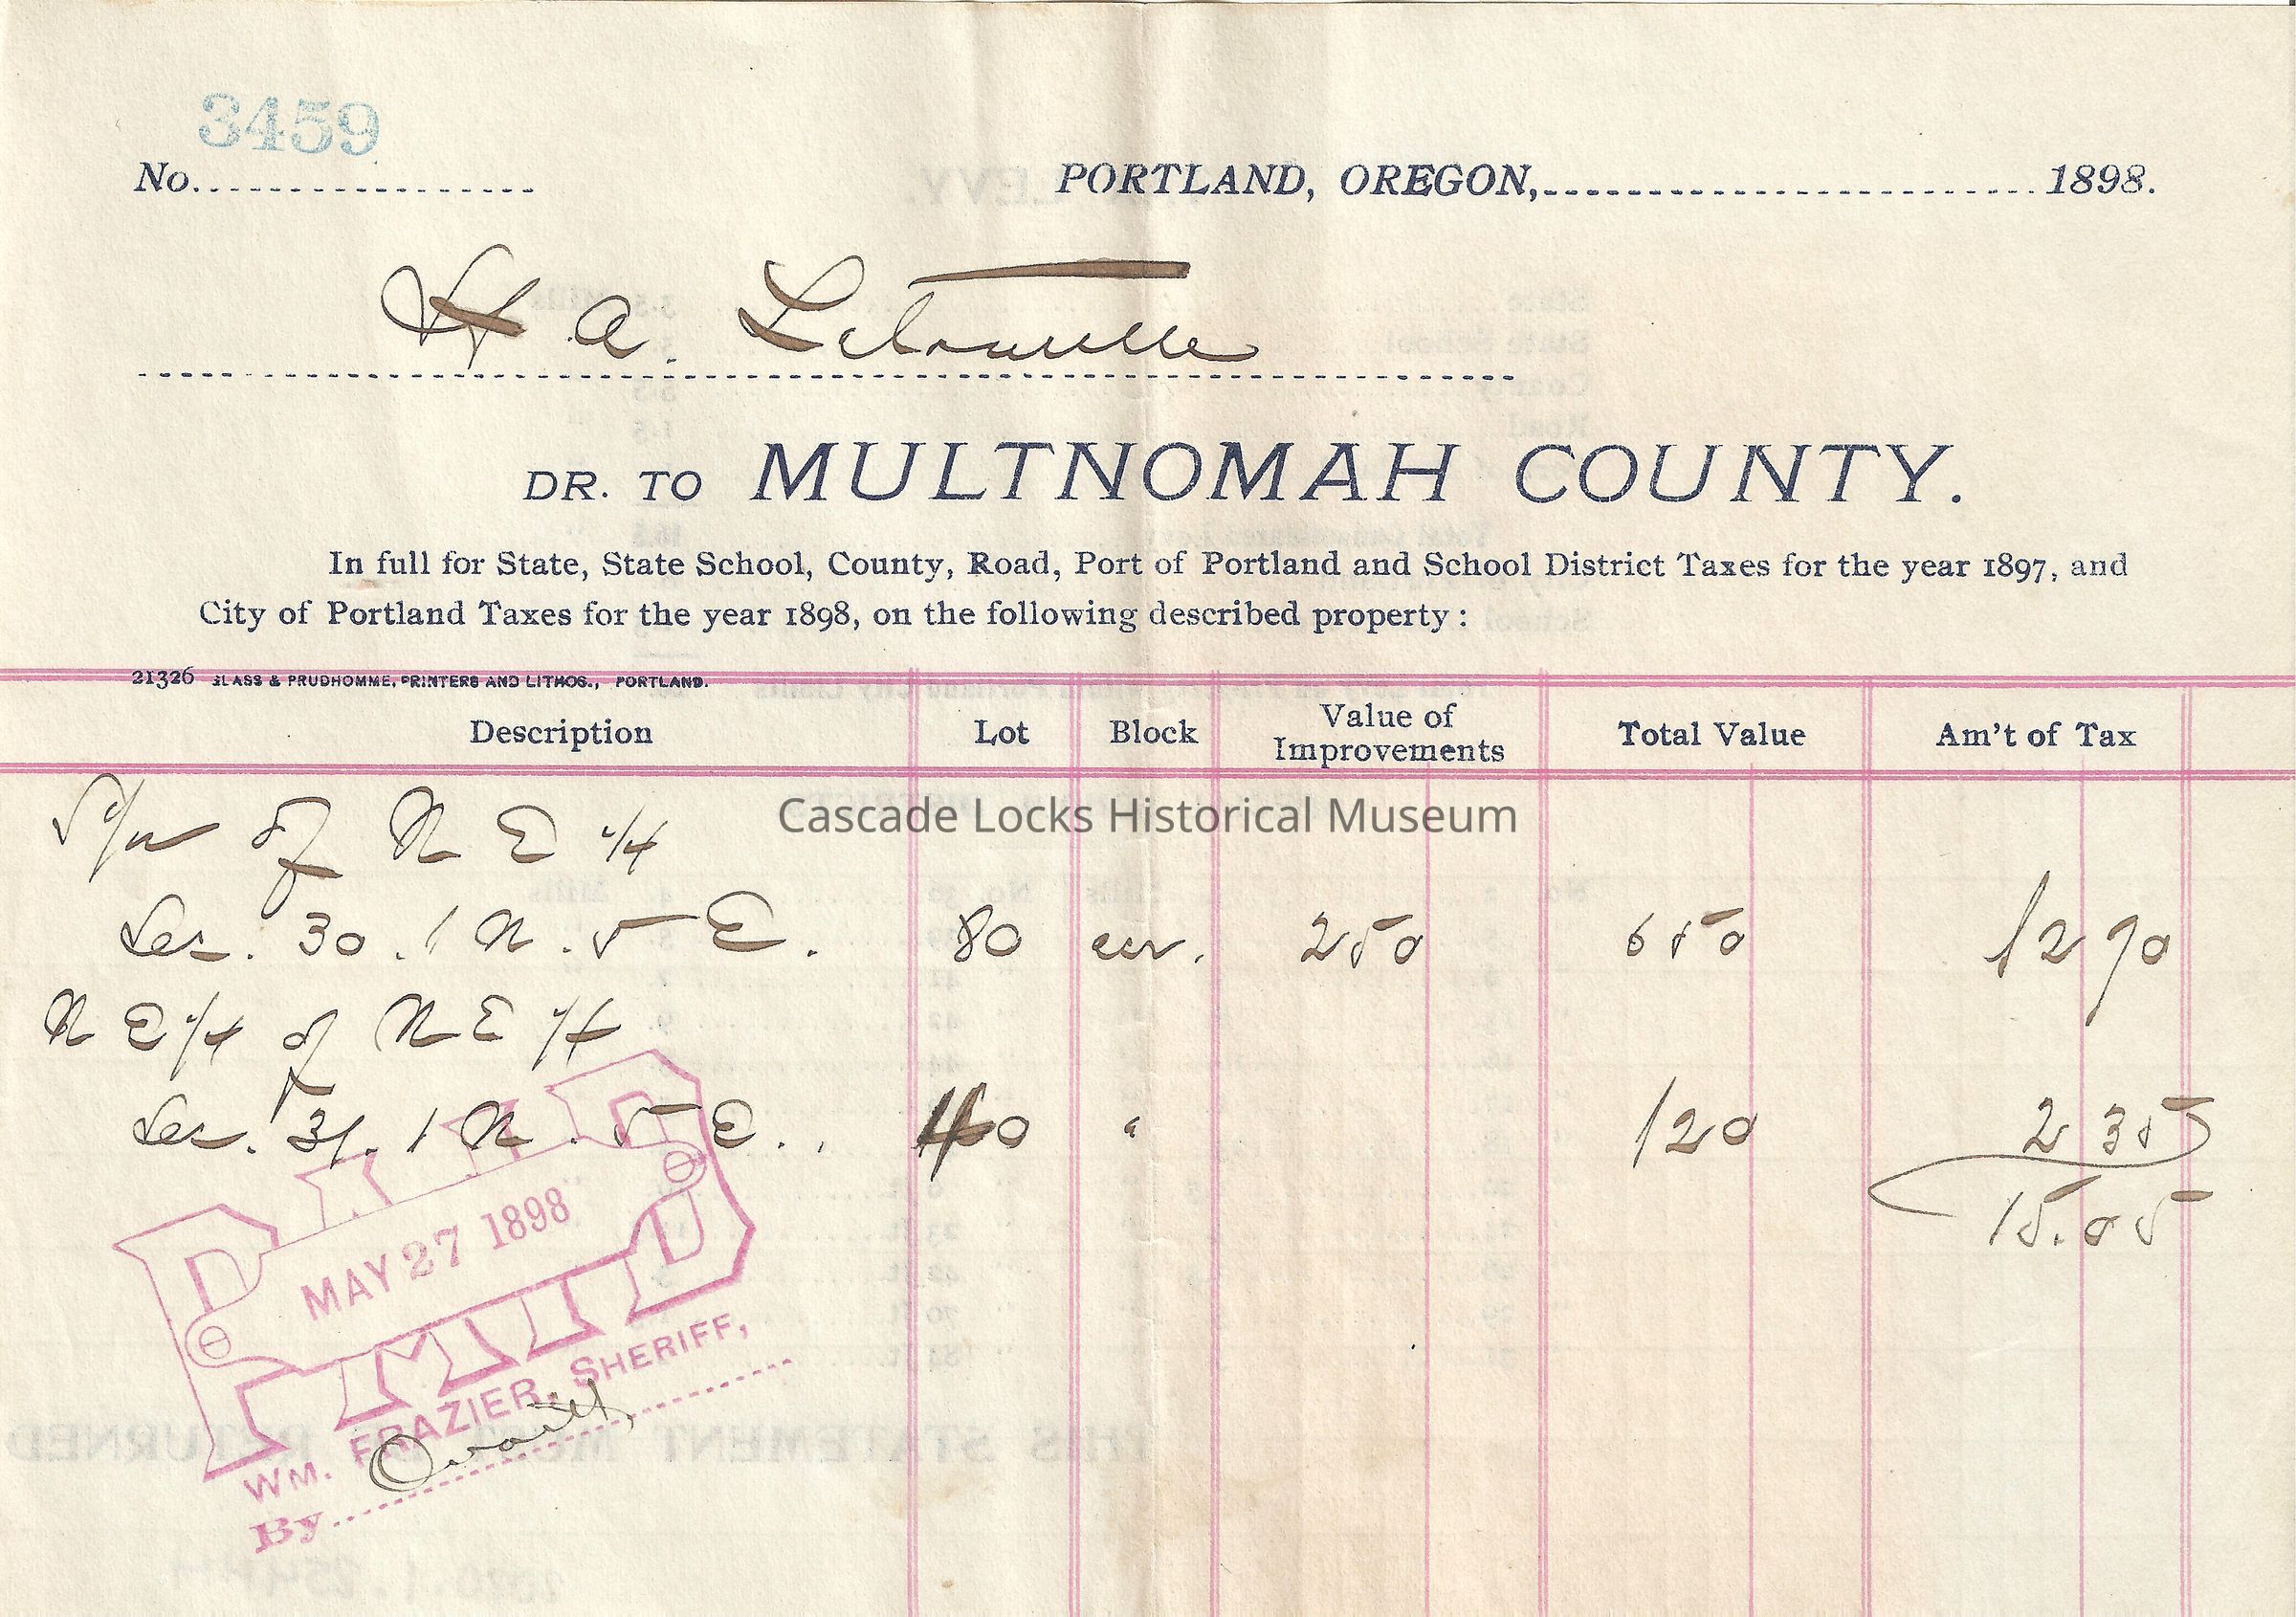 3459
No.
PORTLAND, OREGON, 1898.
H A. Letourelle
DR. TO MULTNOMAH COUNTY.
In full for State, State School, County, Road, Port of Portland and School District Taxes for the year 1897, and
City of Portland Taxes for the year 1898, on the following described property :
21326 GLASS & PRUDHOMME, PRINTERS AND LITHOS., PORTLAND.
Description Lot Block Value of Improvements Total Value Am't of Tax
Cascade Locks Historical Museum
of N E 1/4
Sec. 30. 1 N. 5 E. 80 acr. 250 650 12 70
N E 1/4 of N E 1/4
Sec. 31. 1 N. 5 E. 40 " 120 2 35
15.05
PAID
MAY 27 1898
WM. FRAZIER, SHERIFF,
By